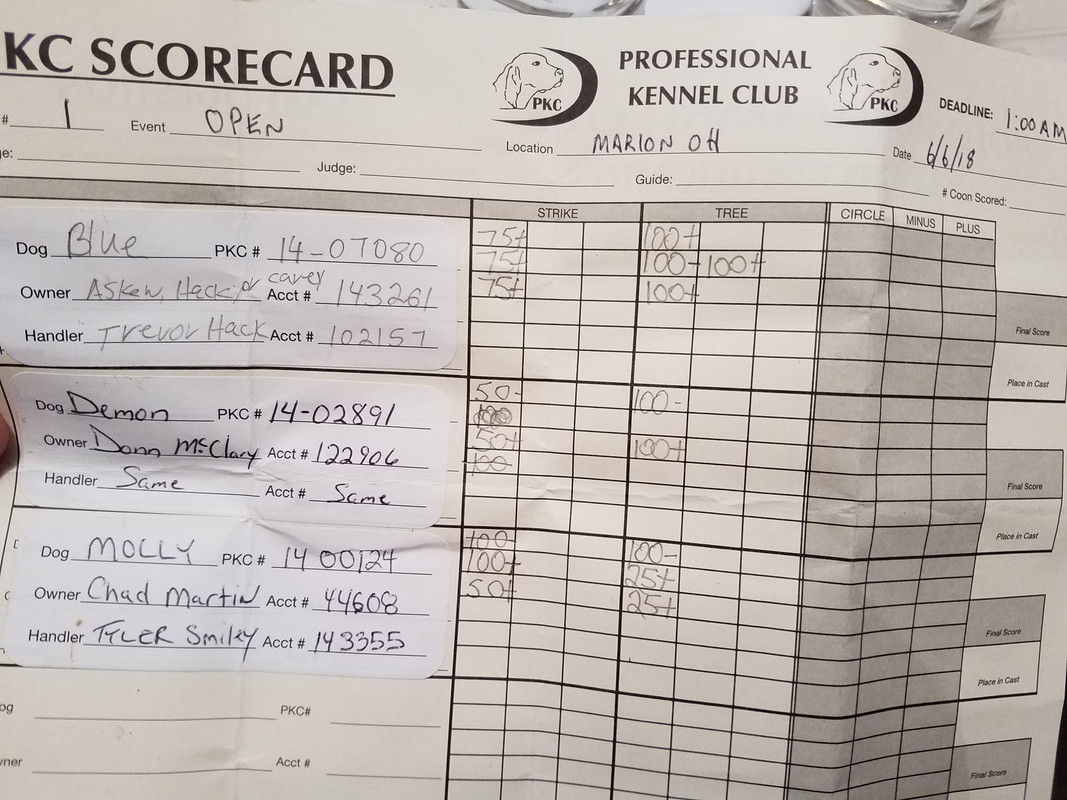 KC SCORECARD
PKC
PROFESSIONAL
KENNEL CLUB
PKC
DEADLINE: 1:00 AM
# 1 Event OPEN
Location MARION OH
Date 6/6/18
ge: Judge: Guide:
# Coon Scored:
STRIKE TREE CIRCLE MINUS PLUS
Dog Blue PKC # 14-07080
Owner Askew, Hack, or carey Acct # 143261
Handler Trevor Hack Acct # 102157
75+ 100+
75+ 100+ 100+
75+ 100+
Final Score
Place in Cast
Dog Demon PKC # 14-02891
Owner Donn McClary Acct # 122906
Handler Same Acct # Same
50- 100-
50+ 100+
100
Final Score
Place in Cast
Dog MOLLY PKC # 14 00124
Owner Chad Martin Acct # 44608
Handler TYLER Smiley Acct # 143355
100 100-
100+ 25+
50+ 25+
Final Score
Place in Cast
og PKC#
wner Acct #
Final Score